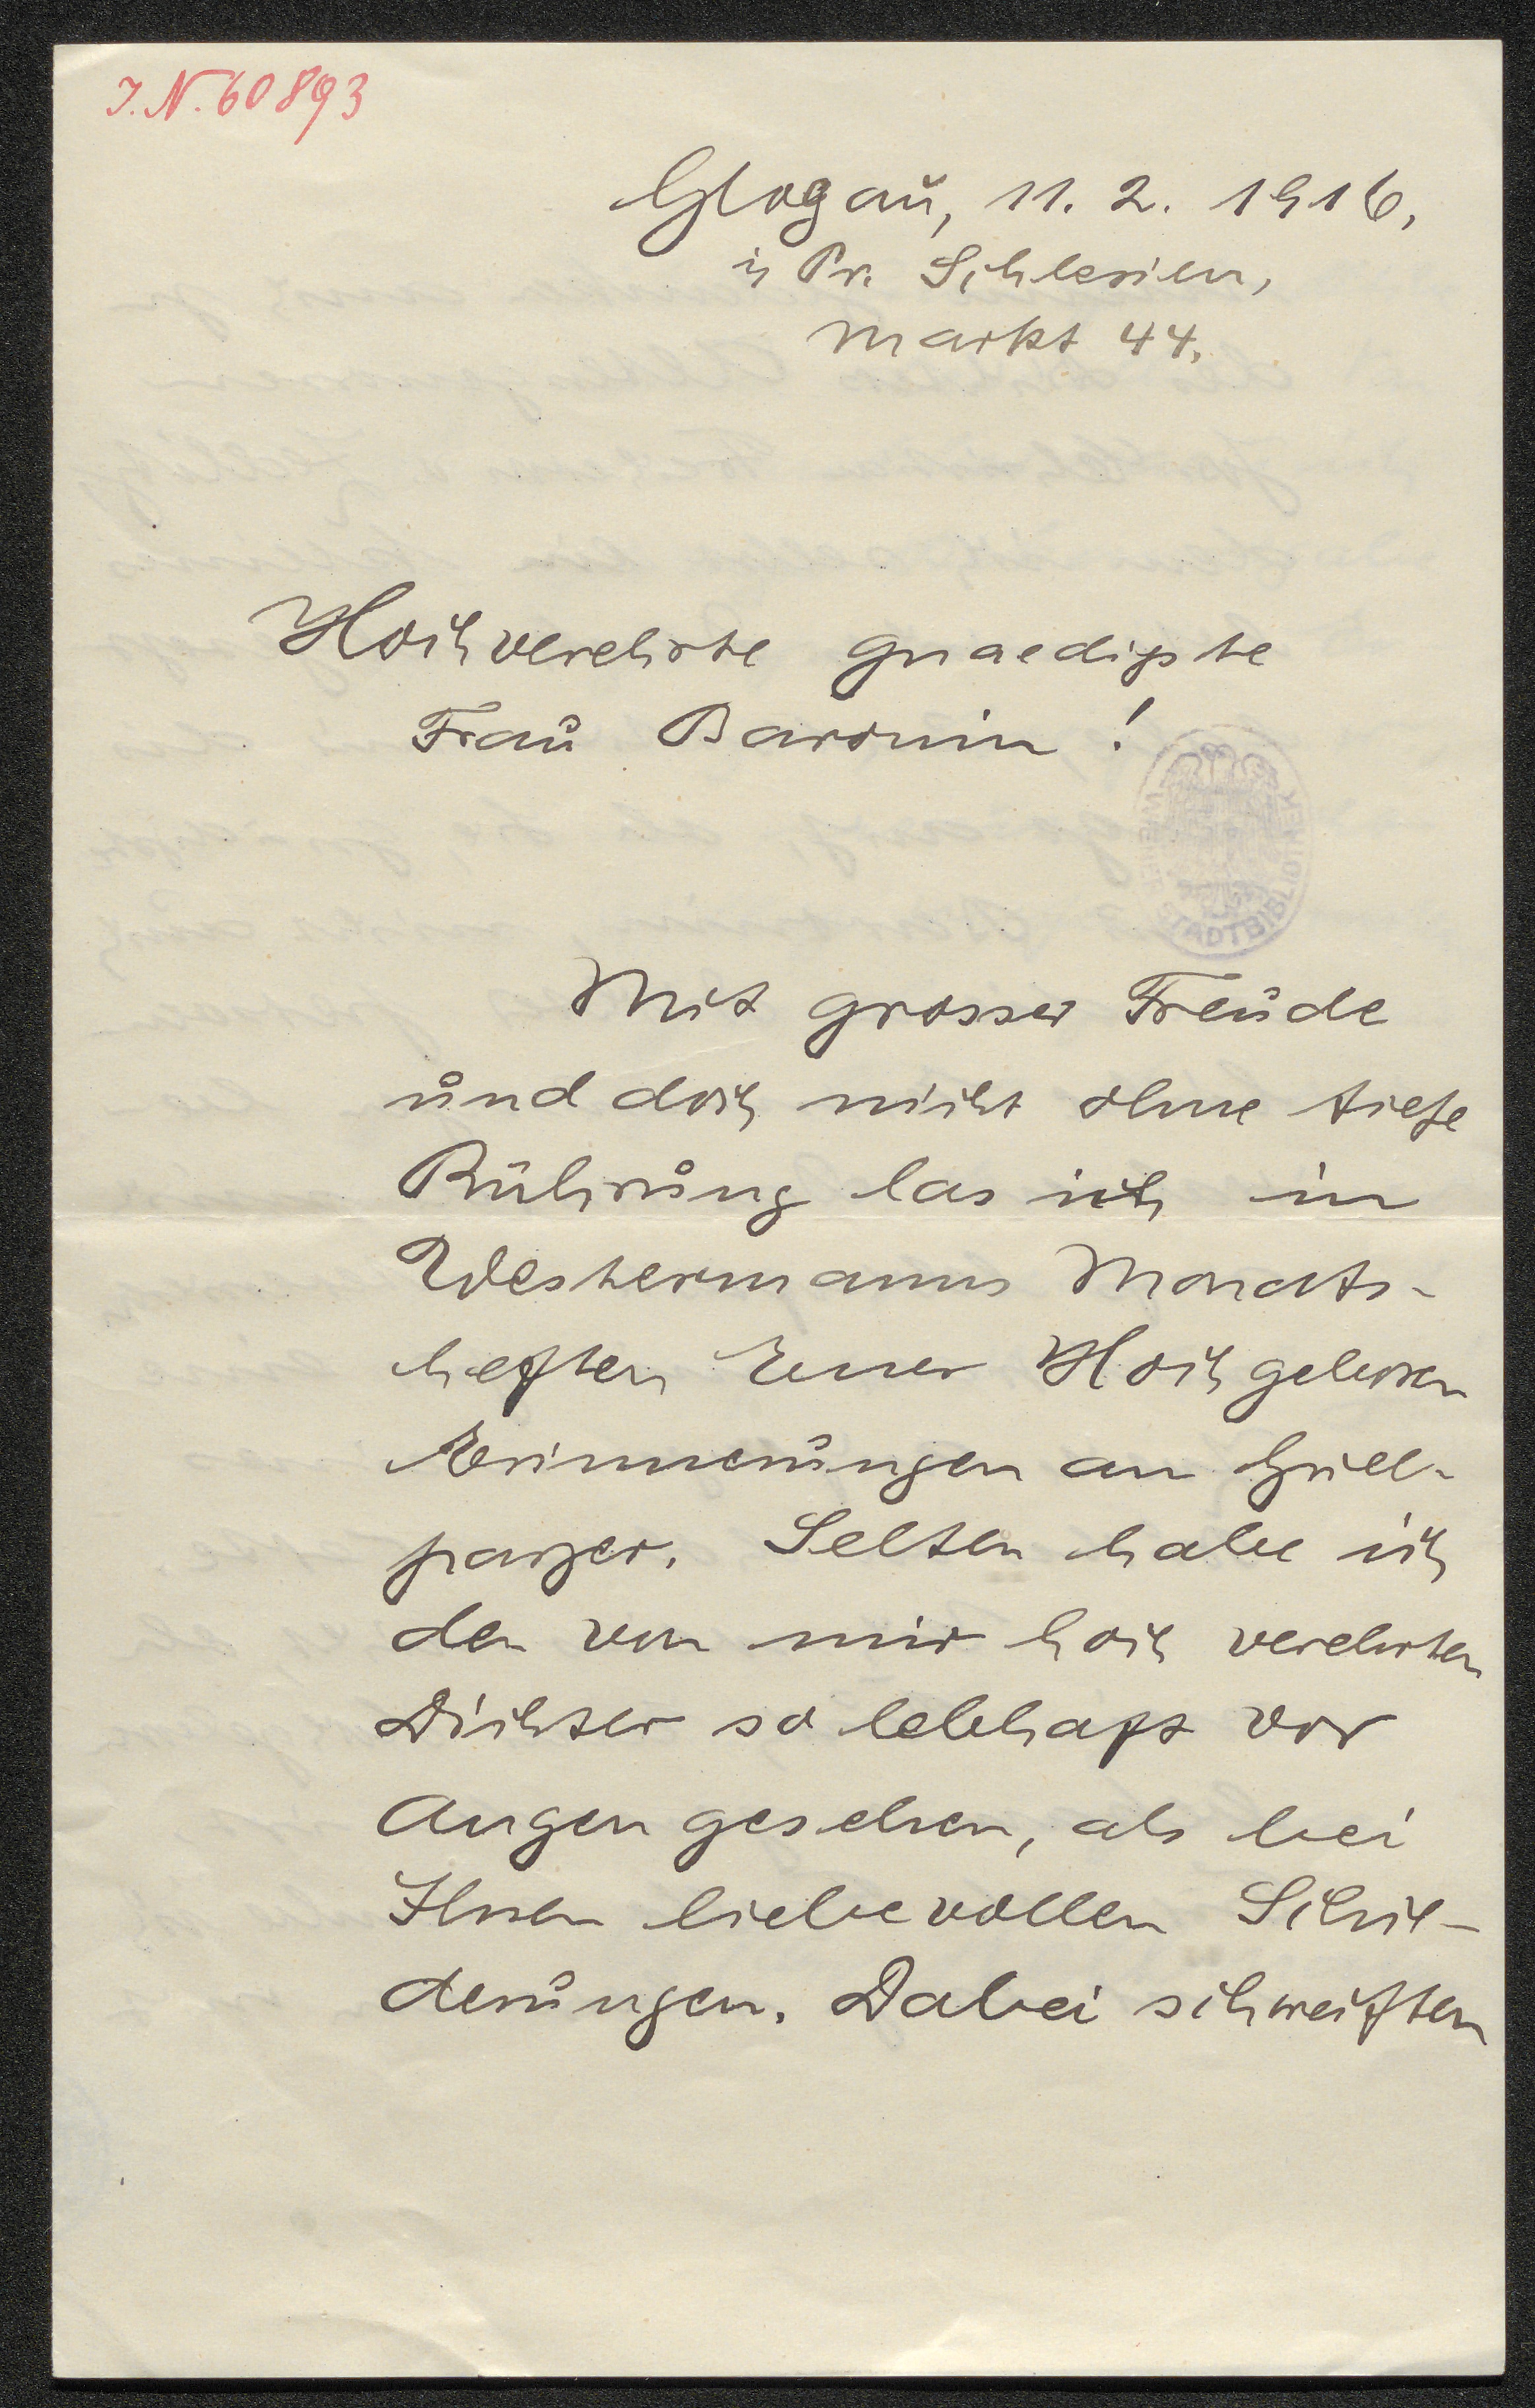 I.N. 60893
Glogau, 11. 2. 1916,
in Pr. Schlesien,
Markt 44.
Hochverehrte gnaedigste
Frau Baronin!
STADTBIBLIOTHEK
Mit grosser Freude
und doch nicht ohne tiefe
Rührung las ich in
Westermanns Monats-
heften Euer Hochgeboren
Erinnerungen an Grill-
parzer. Selten habe ich
den von mir hoch verehrten
Dichter so lebhaft vor
Augen gesehen, als bei
Ihren liebevollen Schil-
derungen. Dabei schweiften